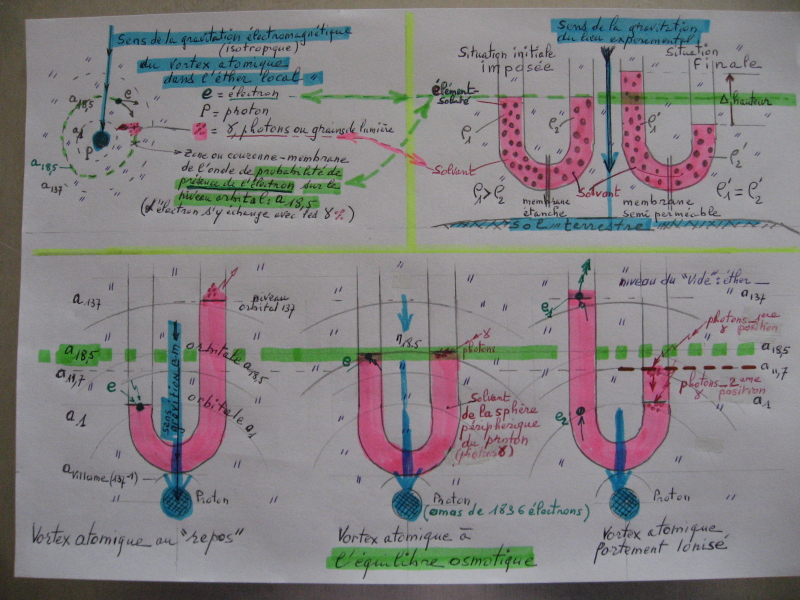 Sens de la gravitation électromagnétique
(isotropique)
du Vortex atomique
dans l'éther local
a18,5
e
a1
P
a18,5
a137
e = électron
P = proton
= γ photons ou grains de lumière
Zone ou couronne-membrane
de l'onde de probabilité de
présence de l'électron sur le
niveau orbital: a18,5
(L'électron s'y échange avec les γ)
Sens de la gravitation
du lieu expérimental
Situation initiale
imposée
Situation
Finale
élément
soluté
Δ hauteur
ρ1
ρ2
ρ'1
ρ'2
Solvant
Solvant
ρ1 > ρ2
ρ'1 = ρ'2
membrane
étanche
membrane
semi perméable
Sol terrestre
a137
niveau
orbital 137
a18,5
orbitale a18,5
a11,7
e
a1
orbitale a1
sens
gravition e-m
aVillame (137-1)
Proton
Vortex atomique au "repos"
η18,5
e
γ
photons
Solvant
de la sphère
périphérique
du proton
(photons γ)
Proton
(amas de 1836 électrons)
Vortex atomique à
l'équilibre osmotique
niveau du "Vide": éther
a137
e1
photons 1ère
γ position
a18,5
a11,7
photons 2ème
γ position
a1
e2
Proton
Vortex atomique
fortement Ionisé